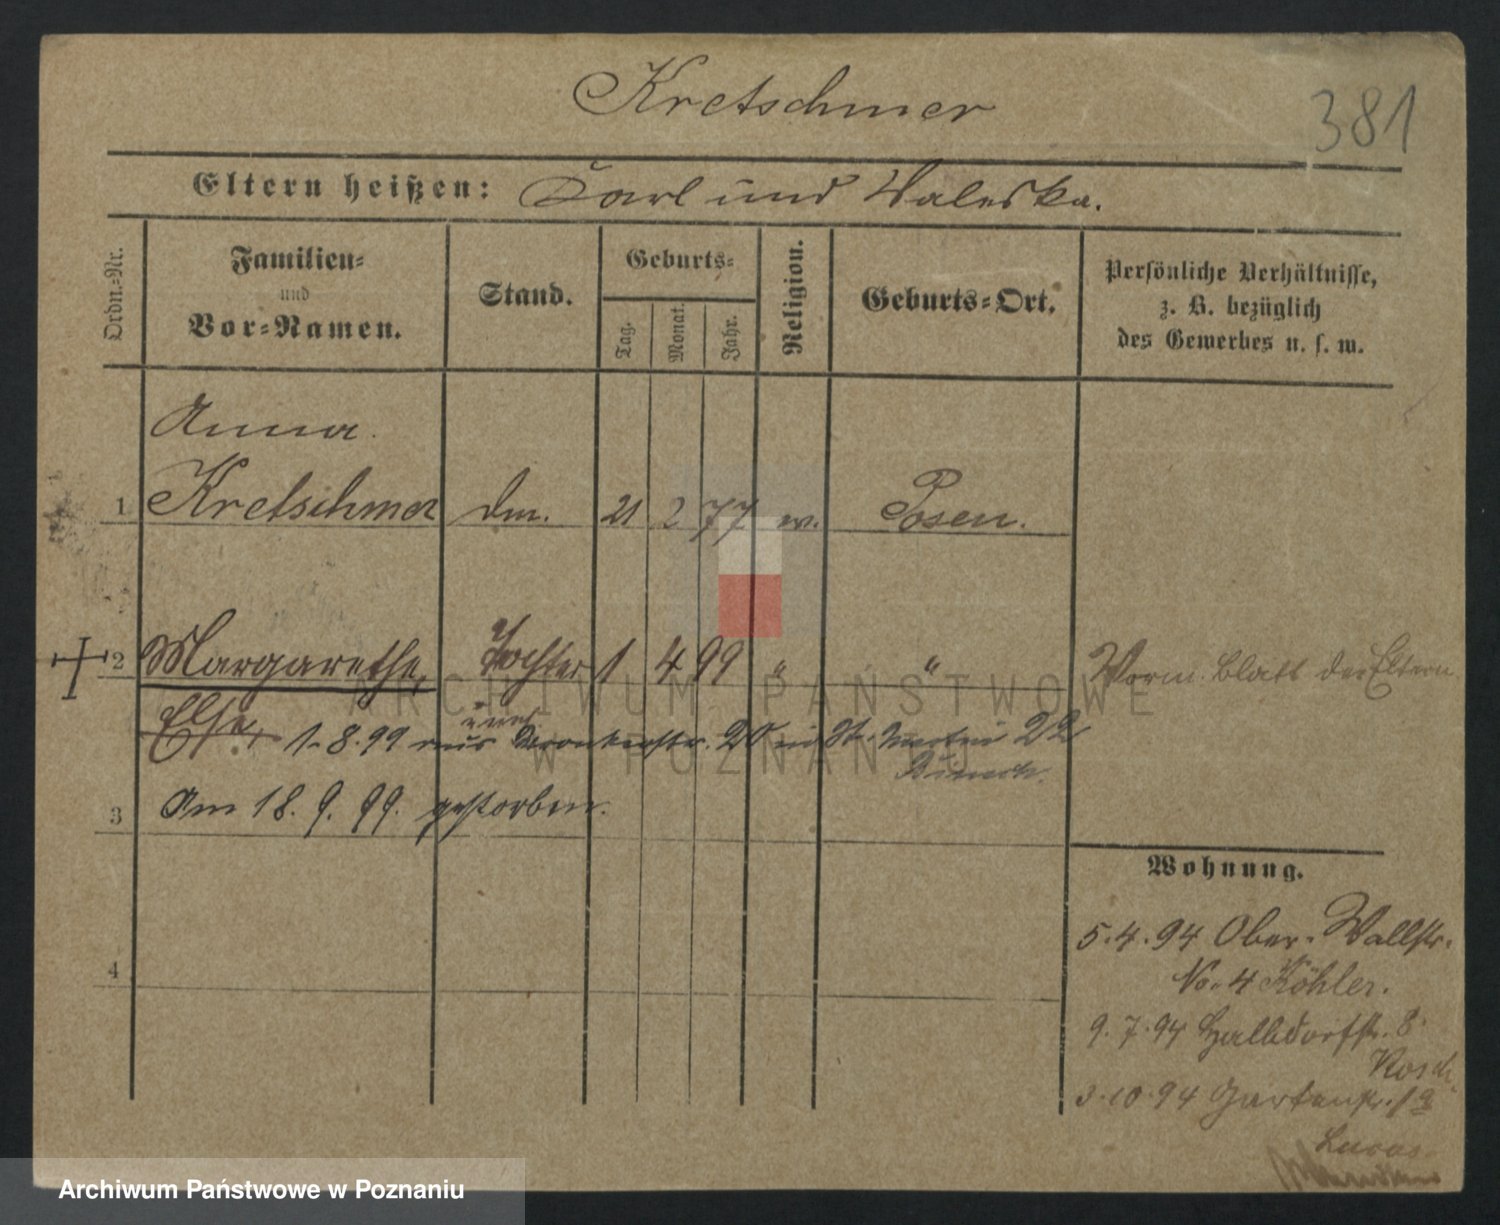 Kretschmer
381
Eltern heißen: Karl und Valeska.
Ordn.=Nr.
Familien=
und
Vor=Namen.
Stand.
Geburts=
Tag.
Monat.
Jahr.
Religion.
Geburts=Ort.
Persönliche Verhältnisse,
z. B. bezüglich
des Gewerbes u. s. w.
Anna
1 Kretschmer 21 2 77 Posen.
2 Margarethe, Tochter 1 4 99 " " Vorm. Blatt der Eltern
Else, 1.8.99 20 St. Martin 22
3 Am 18. 9. 99. gestorben.
4
Wohnung.
5.4.94 Ober-Wallstr.
No. 4 Köhler.
9.7.94 Halbdorfstr. 8
3.10.94 Gartenstr.
Lucas
ARCHIWUM PAŃSTWOWE
W POZNANIU
Archiwum Państwowe w Poznaniu